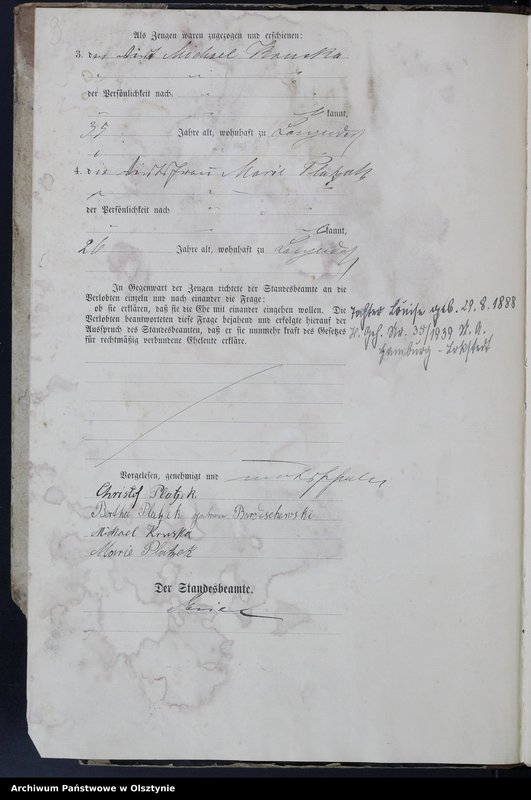 Als Zeugen waren zugezogen und erschienen:
3. der Wirt Michael Kruska
der Persönlichkeit nach
kannt,
35 Jahre alt, wohnhaft zu Langendorf
4. die Wirtsfrau Marie Platzek
der Persönlichkeit nach
kannt,
26 Jahre alt, wohnhaft zu Langendorf
In Gegenwart der Zeugen richtete der Standesbeamte an die
Verlobten einzeln und nach einander die Frage:
ob sie erklären, daß sie die Ehe mit einander eingehen wollen. Die
Verlobten beantworteten diese Frage bejahend und erfolgte hierauf der
Ausspruch des Standesbeamten, daß er sie nunmehr kraft des Gesetzes
für rechtmäßig verbundene Eheleute erkläre.
Tochter Louise geb. 29.8.1888
H. Geh. Nr. 35/1939 St. A.
Hamburg - Lokstedt
Vorgelesen, genehmigt und
Christof Platzek
Bertha Platzek geborene
Michael Kruska
Marie Platzek
Der Standesbeamte.
Archiwum Państwowe w Olsztynie